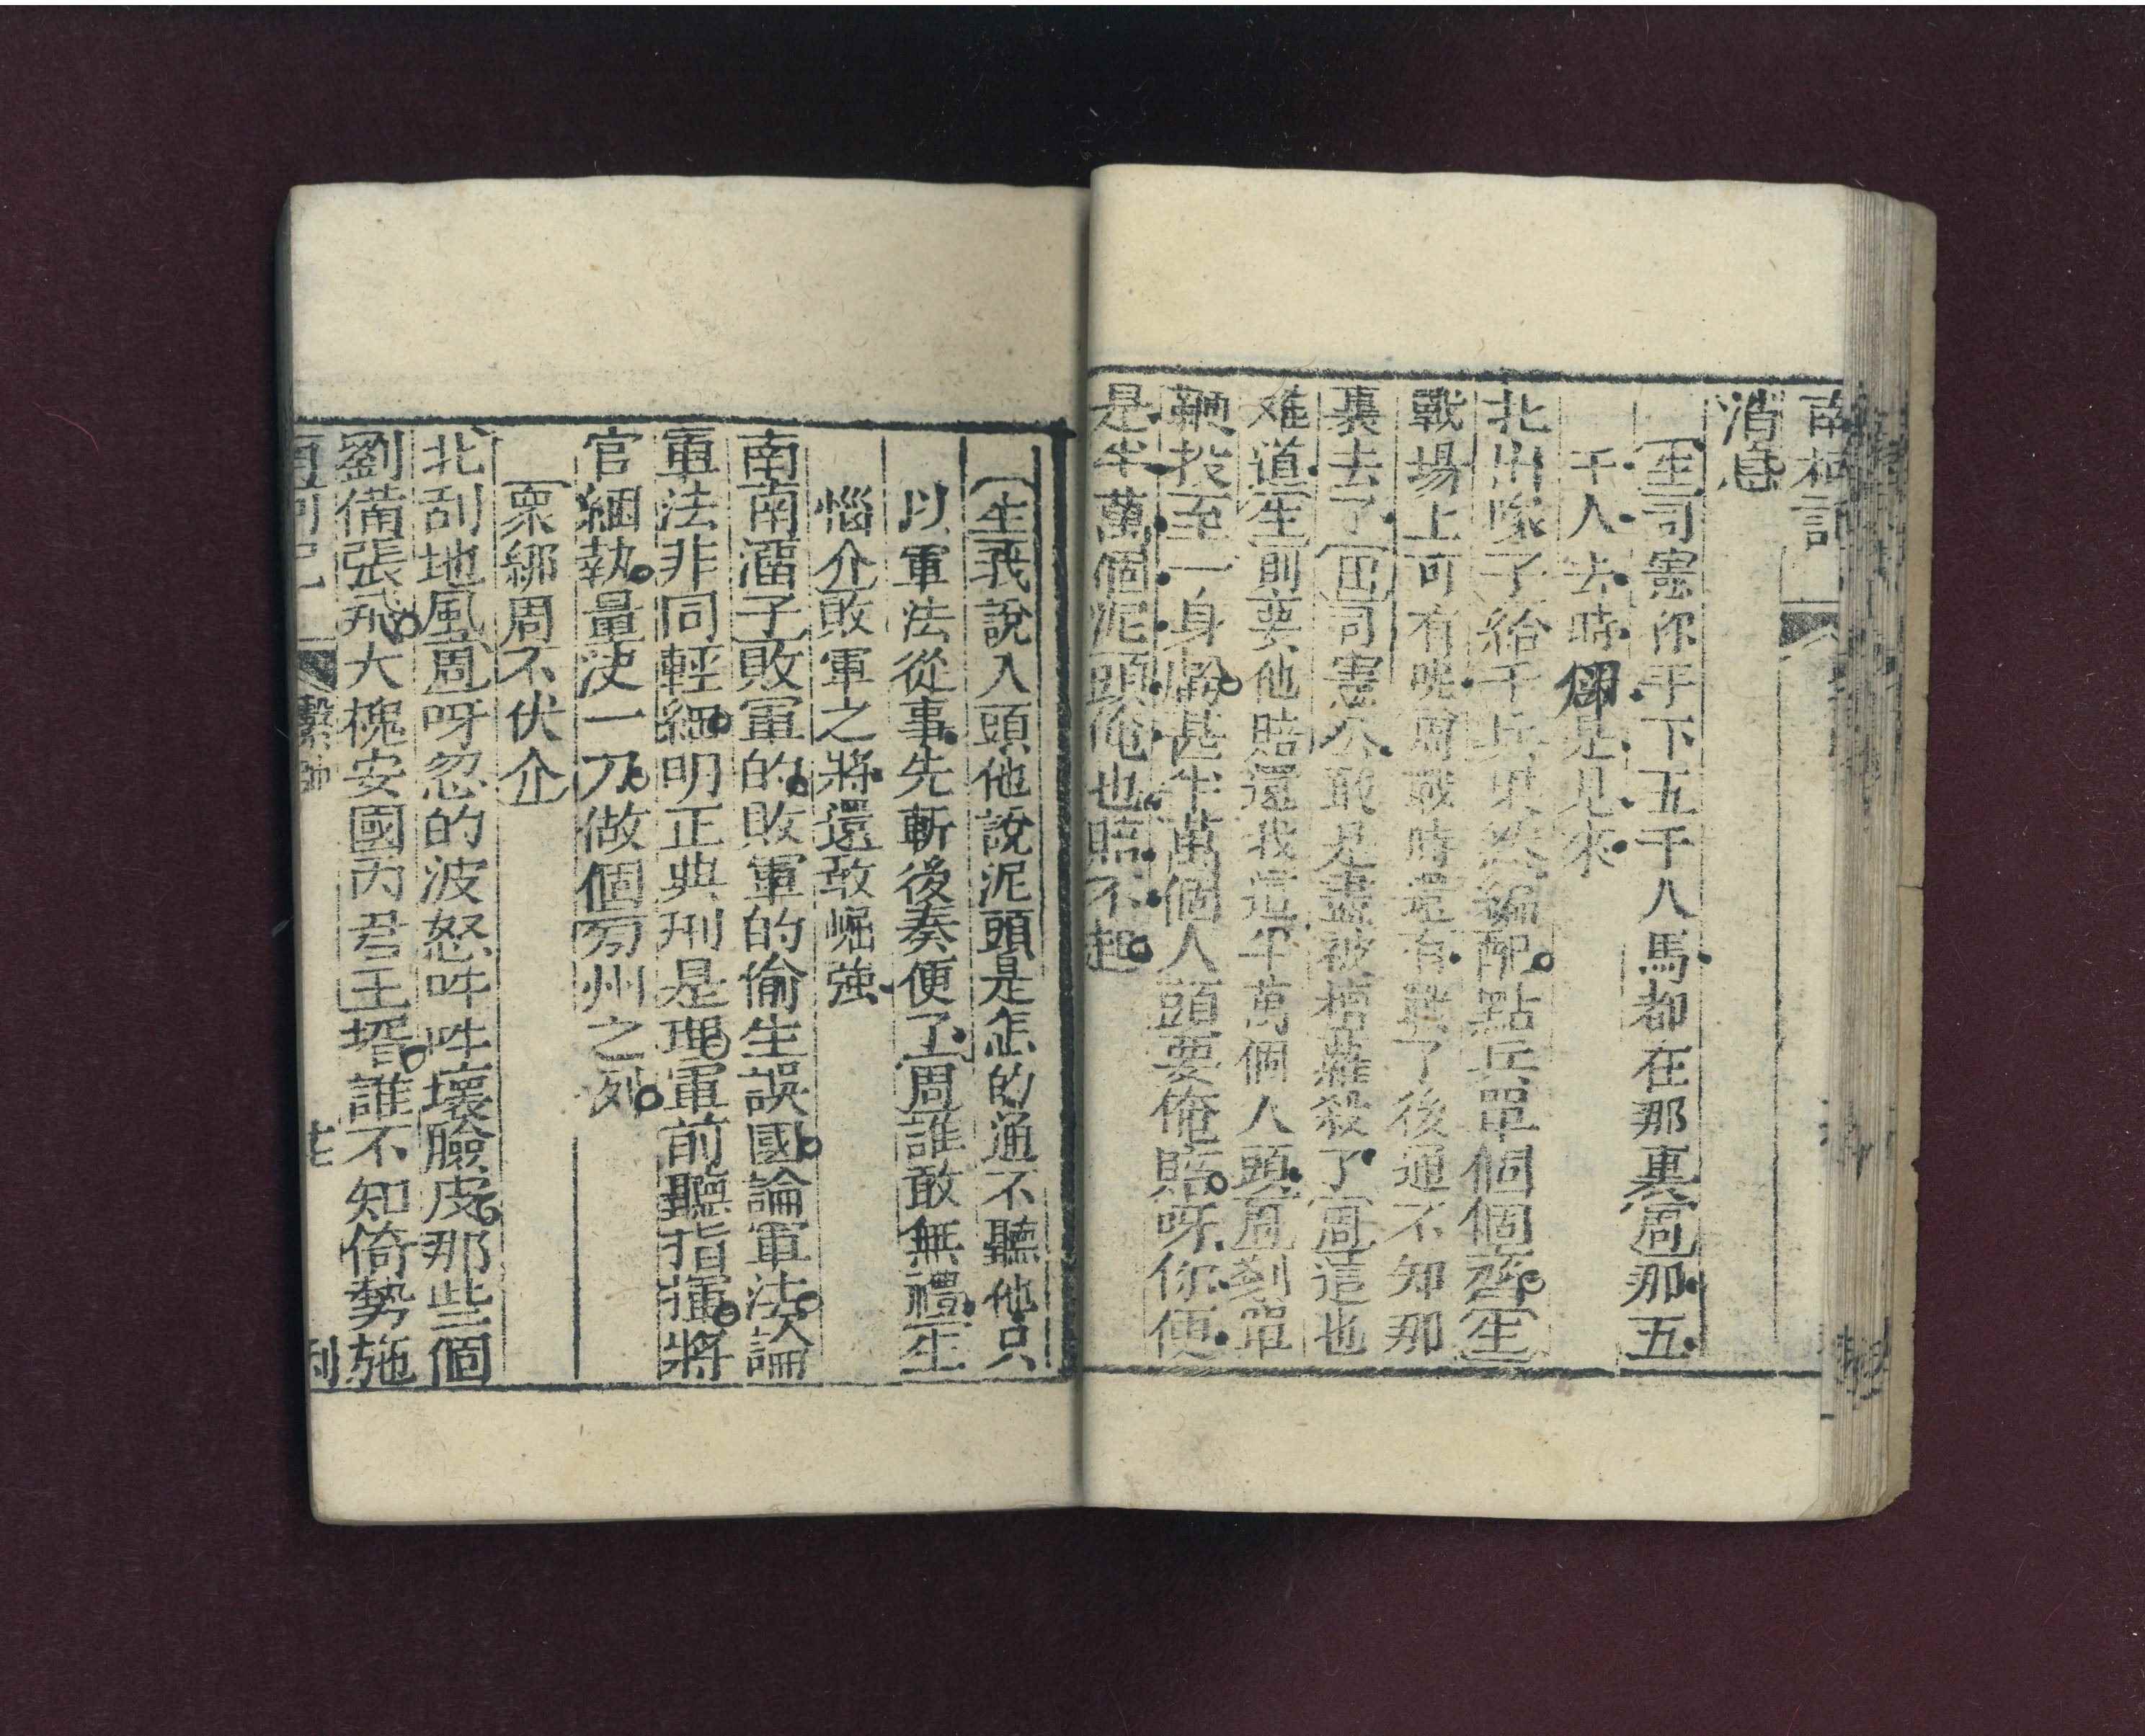 南柯記
消息
生司憲你手下五千人馬都在那裏周那五
千人去時卽是見來
北出隊了給千兵果然編配點兵單個個齊生
戰場上可有呢周戰時還有戰了後通不知那
裏去了田司憲公敢是盡被檀蘿殺了周這也
难道生則要他賠還我這半萬個人頭周剗單
鞭投至一身歸甚半萬個人頭要俺賠呀你便
是半萬個泥頭俺也賠不起
生我說人頭他說泥頭是怎的通不聽他只
以軍法從事先斬後奏便了周誰敢無禮生
惱介敗軍之將還敢崛強
南南溜子敗軍的敗軍的偷生誤國論軍法論
軍法非同輕細明正典刑是理軍前聽指揮將
官綑執量決一刀做個刎州之列
衆綁周不伏介
北刮地風周呀忽的波怒吽吽壞臉皮那些個
劉備張飛大槐安國內君王壻誰不知倚勢施
南柯記 繫帥